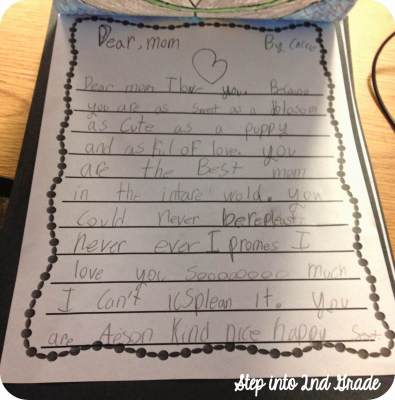 Dear, mom
By
Dear mom I love you. Because
you are as sweet as a blosom
as cute as a puppy
and as ful of love. you
are the Best mom
in the intare wold. you
could never berepleast
Never ever I promes I
love you soooooooo much
I can't icsplean it. you
are Aeison kind nice happy Swet
Step into 2nd Grade